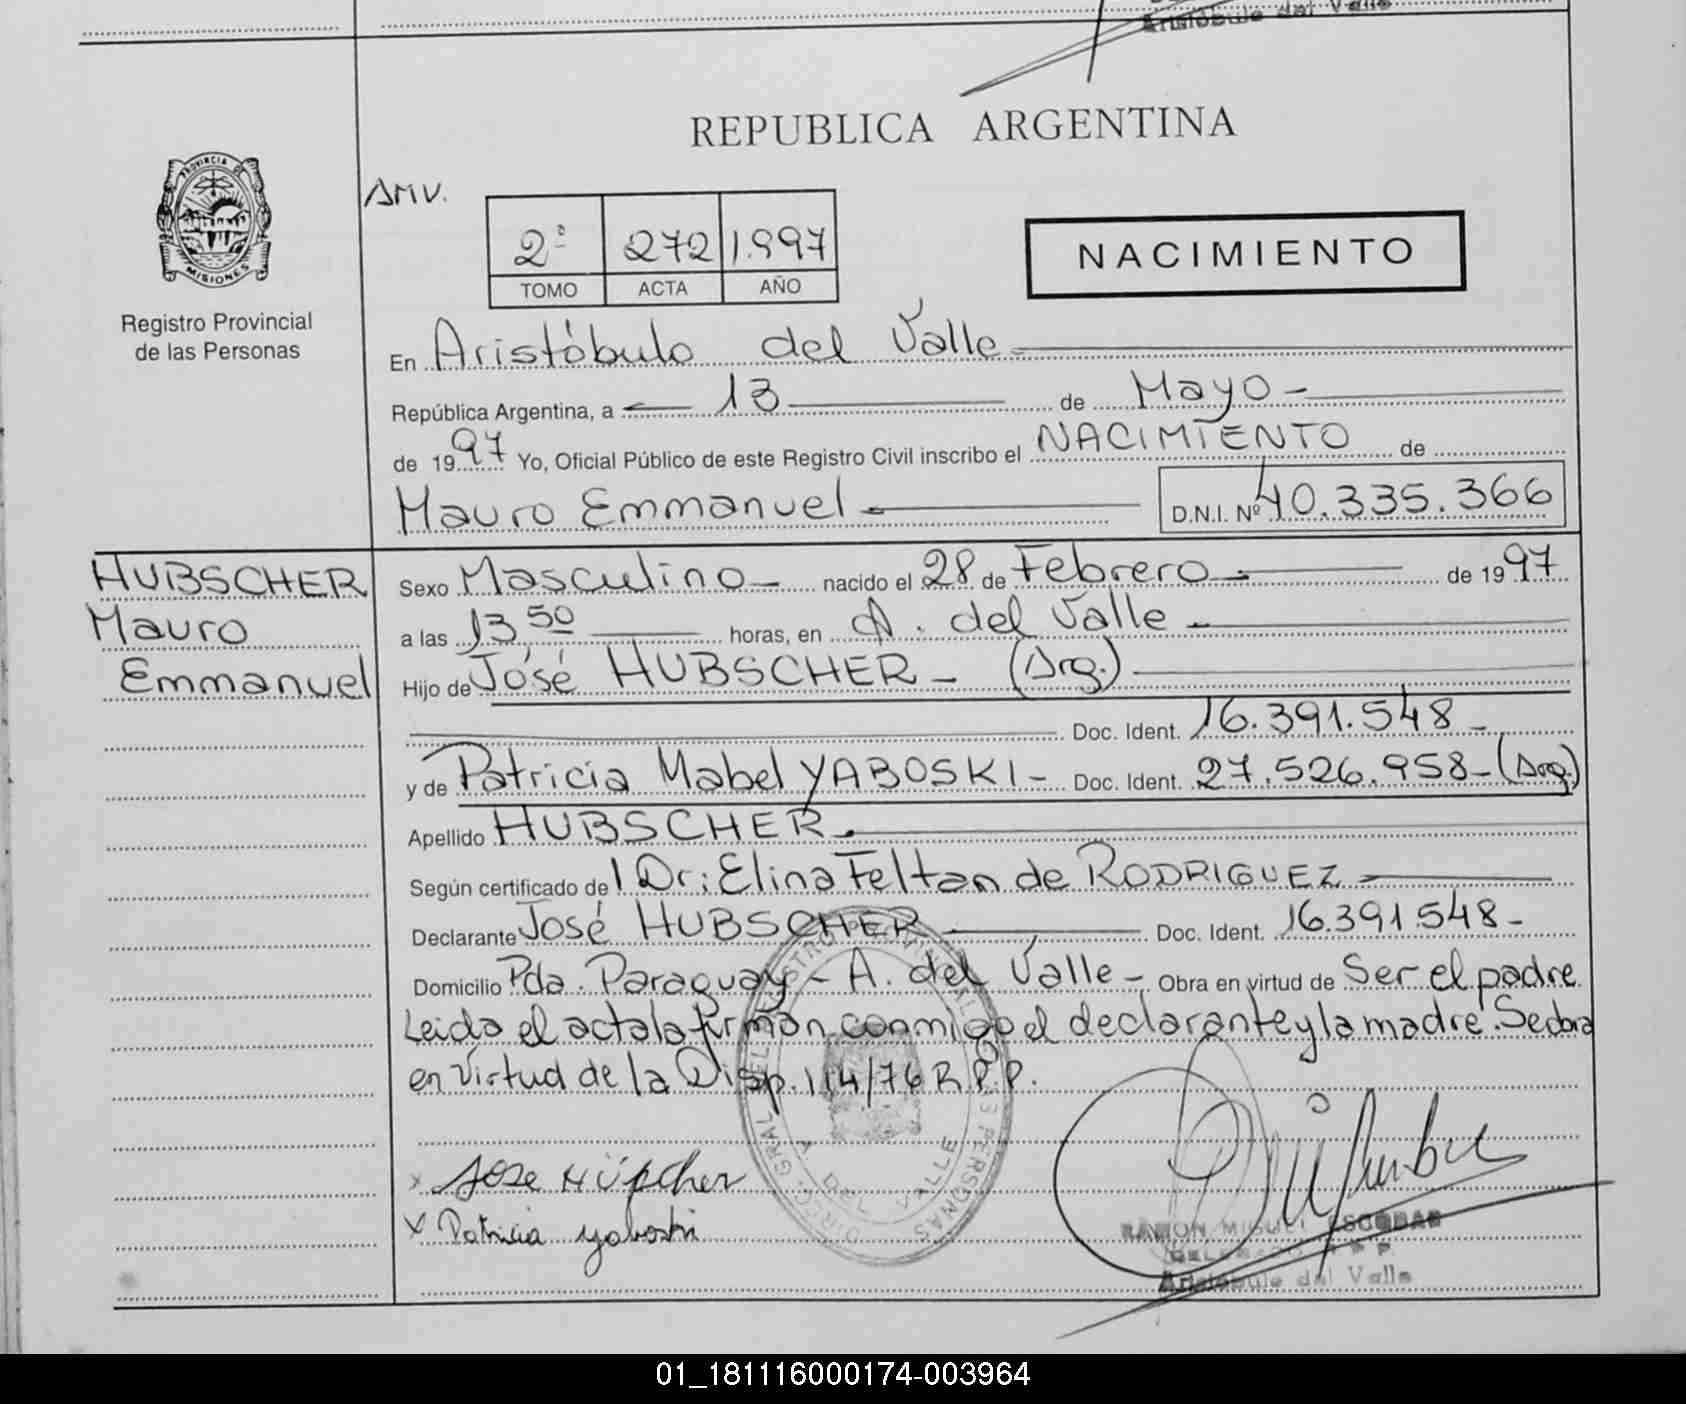 Aristóbulo del Valle
REPUBLICA ARGENTINA
PROVINCIA DE
MISIONES
Registro Provincial
de las Personas
AMV.
2º 272 1.997
TOMO ACTA AÑO
NACIMIENTO
En Aristóbulo del Valle
República Argentina, a 13 de Mayo
de 1997 Yo, Oficial Público de este Registro Civil inscribo el NACIMIENTO de
Mauro Emmanuel D.N.I. Nº 40.335.366
HUBSCHER
Mauro
Emmanuel
Sexo Masculino nacido el 28 de Febrero de 1997
a las 13 50 horas, en A. del Valle
Hijo de José HUBSCHER - (Arg.)
Doc. Ident. 16.391.548
y de Patricia Mabel YABOSKI - Doc. Ident. 27.526.958 - (Arg.)
Apellido HUBSCHER
Según certificado de l Dr: Elina Feltan de RODRIGUEZ
Declarante José HUBSCHER Doc. Ident. 16.391.548
Domicilio Pda. Paraguay - A. del Valle - Obra en virtud de Ser el padre.
Leida el acta la firman conmigo el declarante y la madre. Se
en virtud de la Disp. 114/76 R.P.P.
x Jose Hüpcher
x Patricia yaboski
RAMON MIGUEL ESCOBAR
Aristóbulo del Valle
01_181116000174-003964